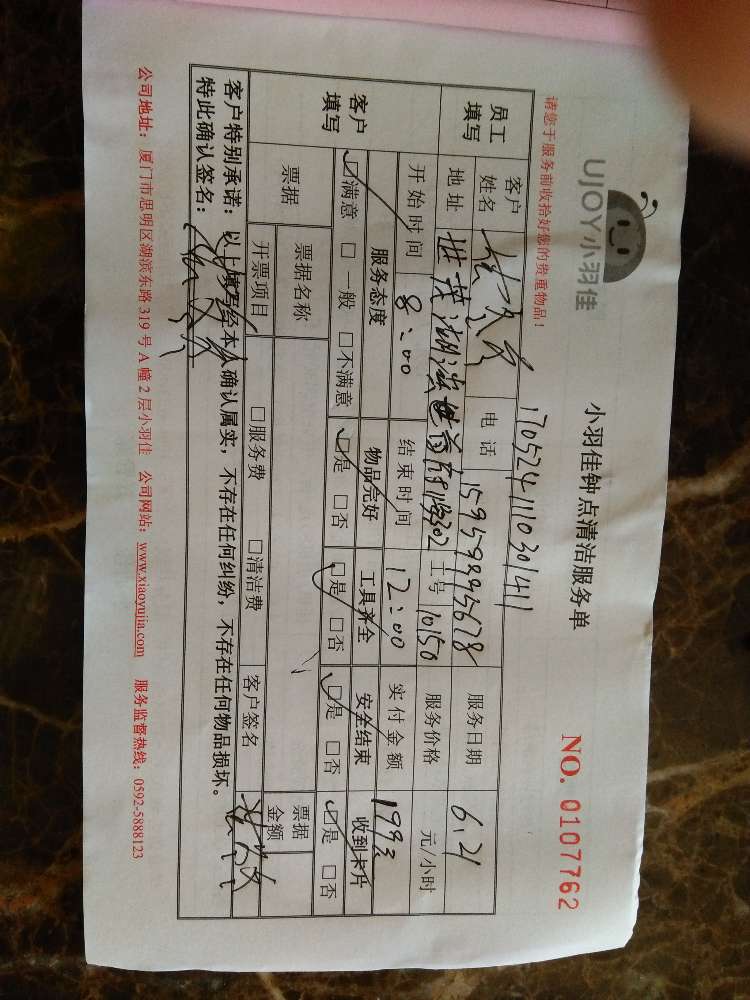 UJOY小羽佳
小羽佳钟点清洁服务单
NO. 0107762
请您于服务前收拾好您的贵重物品！
1705241110301411
员工填写
客户姓名
电话 15959895678
服务日期 6.21
地址
工号 10150
服务价格 元/小时
客户填写
开始时间 8:00 结束时间 12:00 实付金额 199.2
服务态度 物品完好 工具齐全 安全结束 收到卡片
☑满意 □一般 □不满意 ☑是 □否 ☑是 □否 ☑是 □否 ☑是 □否
票据 票据名称 票据金额
开票项目 □服务费 □清洁费 客户签名
客户特别承诺：以上填写经本人确认属实，不存在任何纠纷，不存在任何物品损坏。
特此确认签名：
公司地址：厦门市思明区湖滨东路319号A幢2层小羽佳 公司网站：www.xiaoyujia.com 服务监督热线：0592-5888123